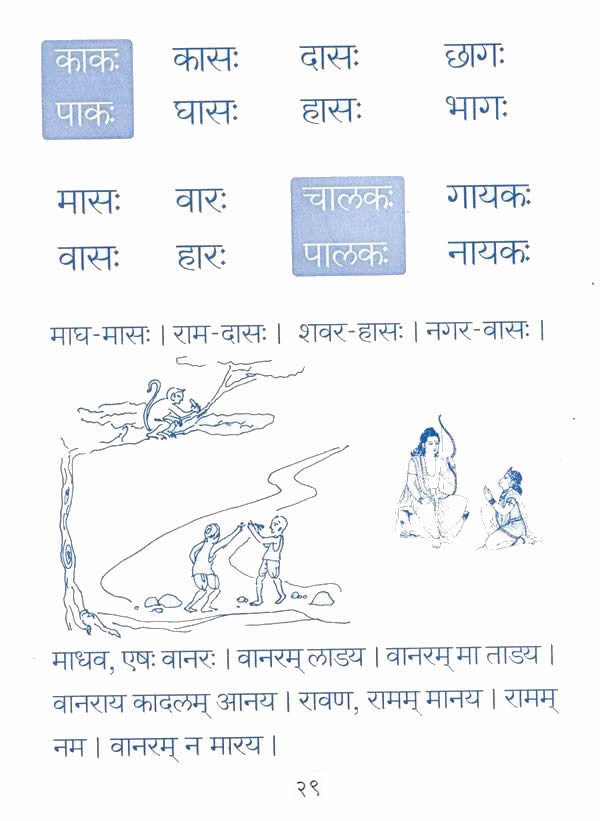 काकः कासः दासः छागः
पाकः घासः हासः भागः
मासः वारः चालकः गायकः
वासः हारः पालकः नायकः
माघ-मासः । राम-दासः । शवर-हासः । नगर-वासः ।
माधव, एषः वानरः । वानरम् लाडय । वानरम् मा ताडय ।
वानराय कादलम् आनय । रावण, रामम् मानय । रामम्
नम । वानरम् न मारय ।
२९